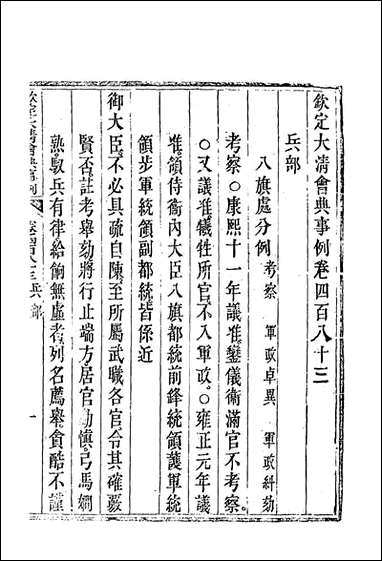 欽定大清會典事例卷四百八十三
兵部
八旗處分例 考察 軍政卓異 軍政糾劾
考察○康熙十一年議准鑾儀衛滿官不考察
○又議准犧牲所官不入軍政○雍正元年議
准領侍衛內大臣八旗都統前鋒統領護軍統
領步軍統領副都統皆係近
御大臣不必具疏自陳至所屬武職各官令其覈
賢否註考舉劾將行止端方居官勤慎弓馬嫺
熟馭兵有律給餉無虛者列名薦舉貪酷不謹
欽定大清會典事例 兵部 一